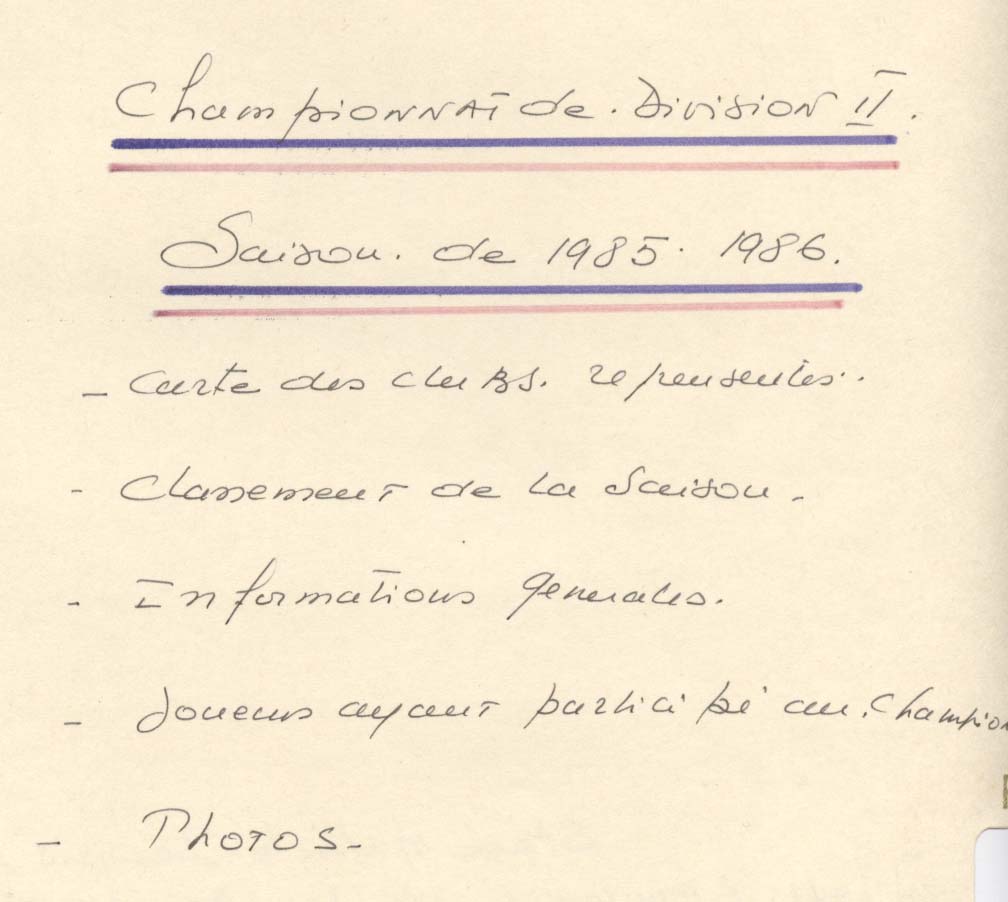 Championnat de. Division II.
Saison. de 1985. 1986.
- Carte des cluBs. repensentes.
- Classement de la Saison.
- Informations generales.
- Joueurs ayant participé au. Champion
- Photos-